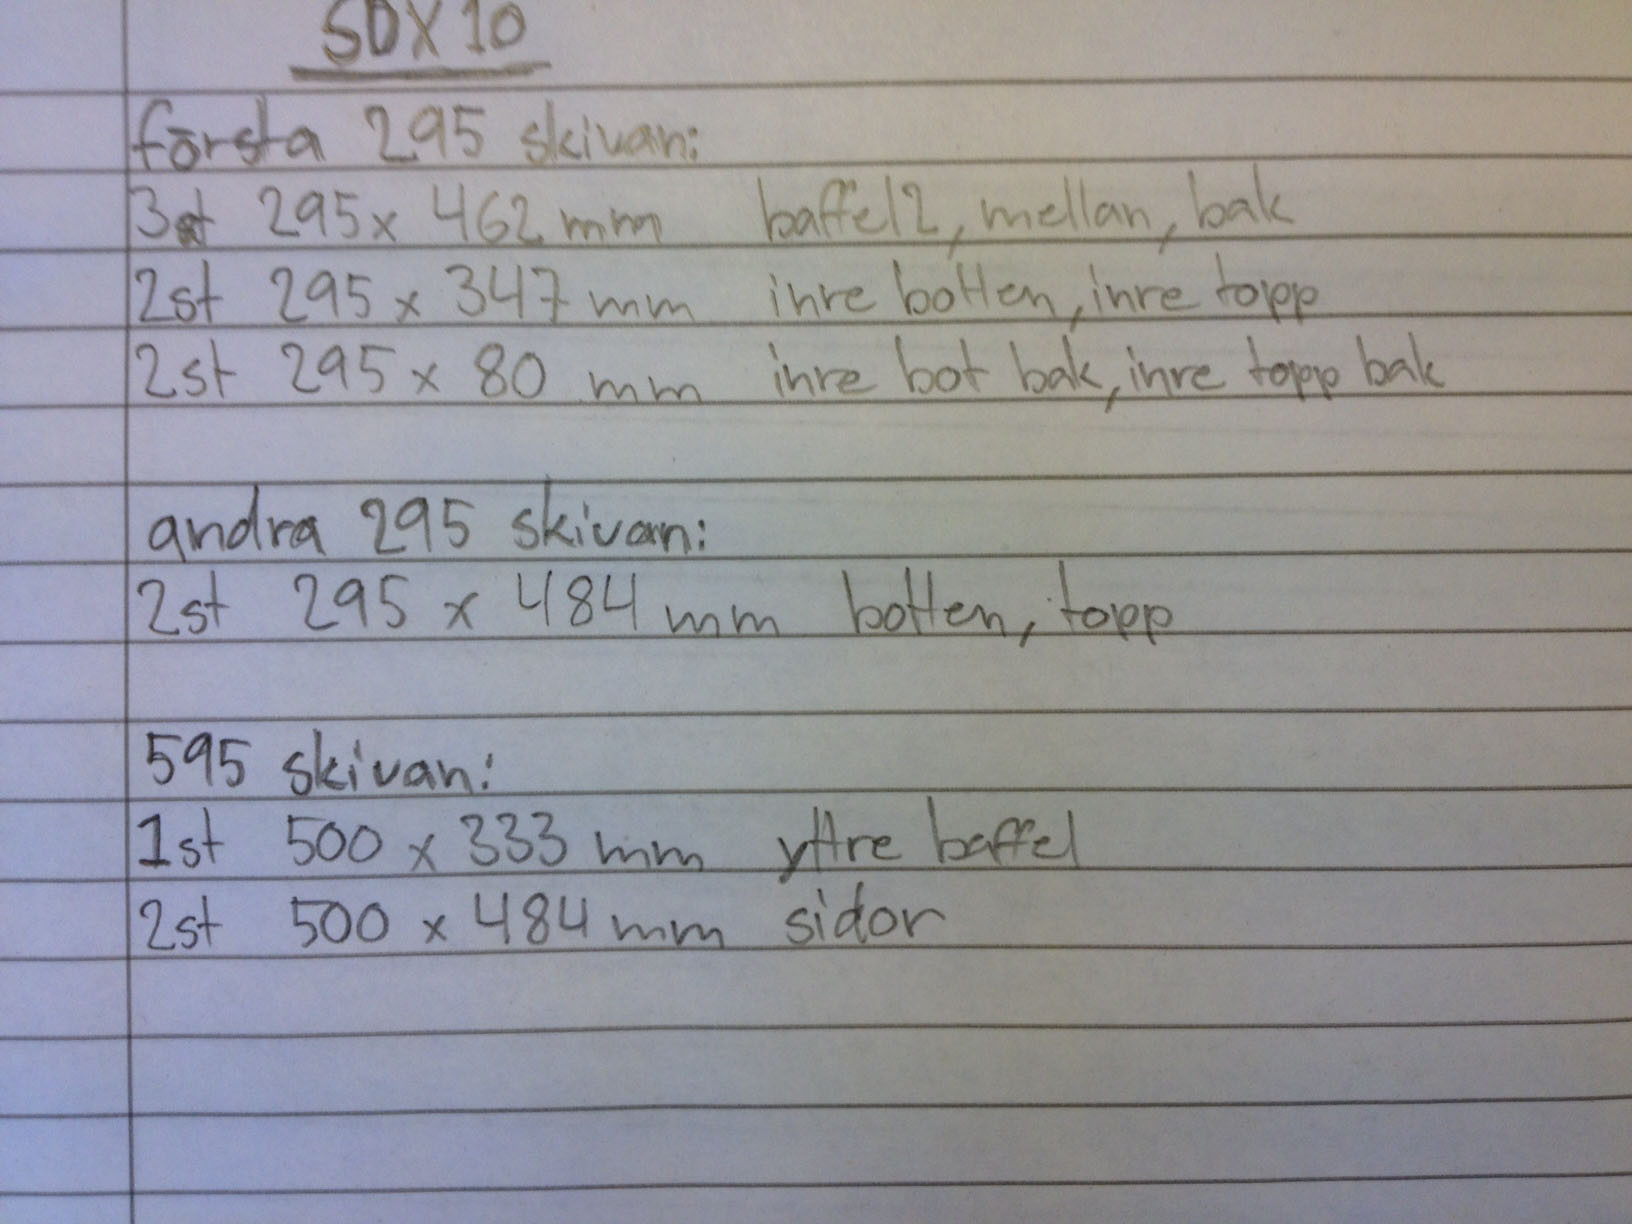 SDX10
första 295 skivan:
3st 295 x 462 mm baffel 2, mellan, bak
2st 295 x 347 mm inre botten, inre topp
2st 295 x 80 mm inre bot bak, inre topp bak
andra 295 skivan:
2st 295 x 484 mm botten, topp
595 skivan:
1st 500 x 333 mm yttre baffel
2st 500 x 484 mm sidor